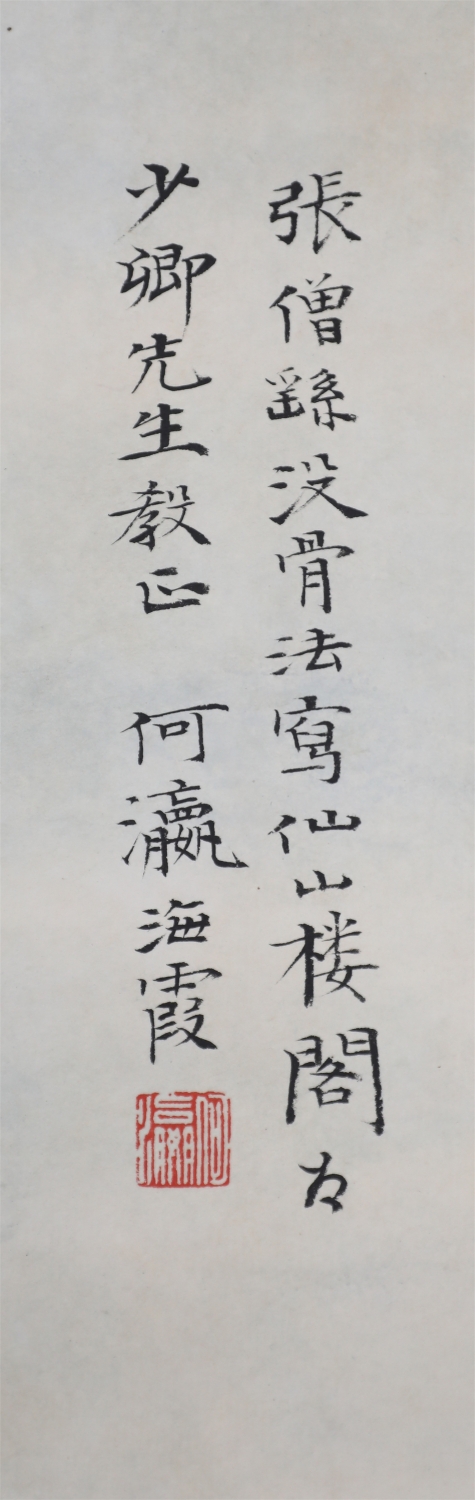 張僧繇没骨法寫仙山楼閣为
少卿先生教正 何瀛海霞
何瀛